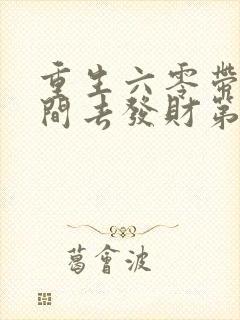 重生六零帶
間去發財第
葛會波